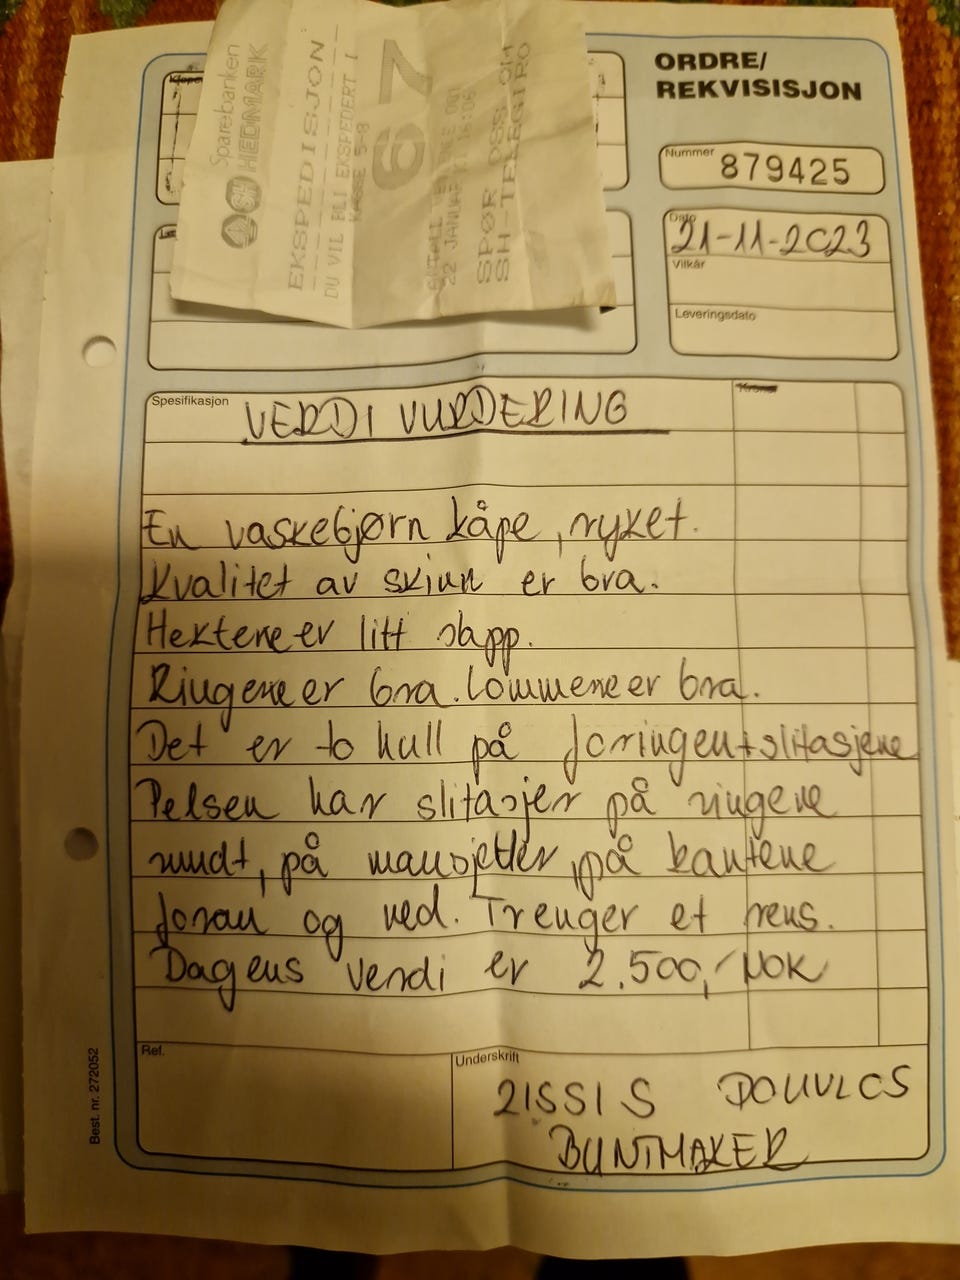 ORDRE/
REKVISISJON
Sparebanken
HEDMARK
EKSPEDISJON
DU VIL BLI EKSPEDERT I
KASSE 5-8
67
22 JANUAR
SPØR OSS OM
SH-TELEGIRO
Nummer 879425
Dato
21-11-2023
Vilkår
Leveringsdato
Spesifikasjon VERDI VURDERING
En vaskebjørn kåpe, ryket.
Kvalitet av skinn er bra.
Hektene er litt slapp.
Ringene er bra. Lommene er bra.
Det er to hull på foringen+slitasjene
Pelsen har slitasjer på ringene
rundt, på mansjetter, på kantene
foran og ved. Trenger et rens.
Dagens verdi er 2.500,- NOK
Ref.
Underskrift
ZISSIS DOUVLOS
BUNTMAKER
Best. nr. 272052